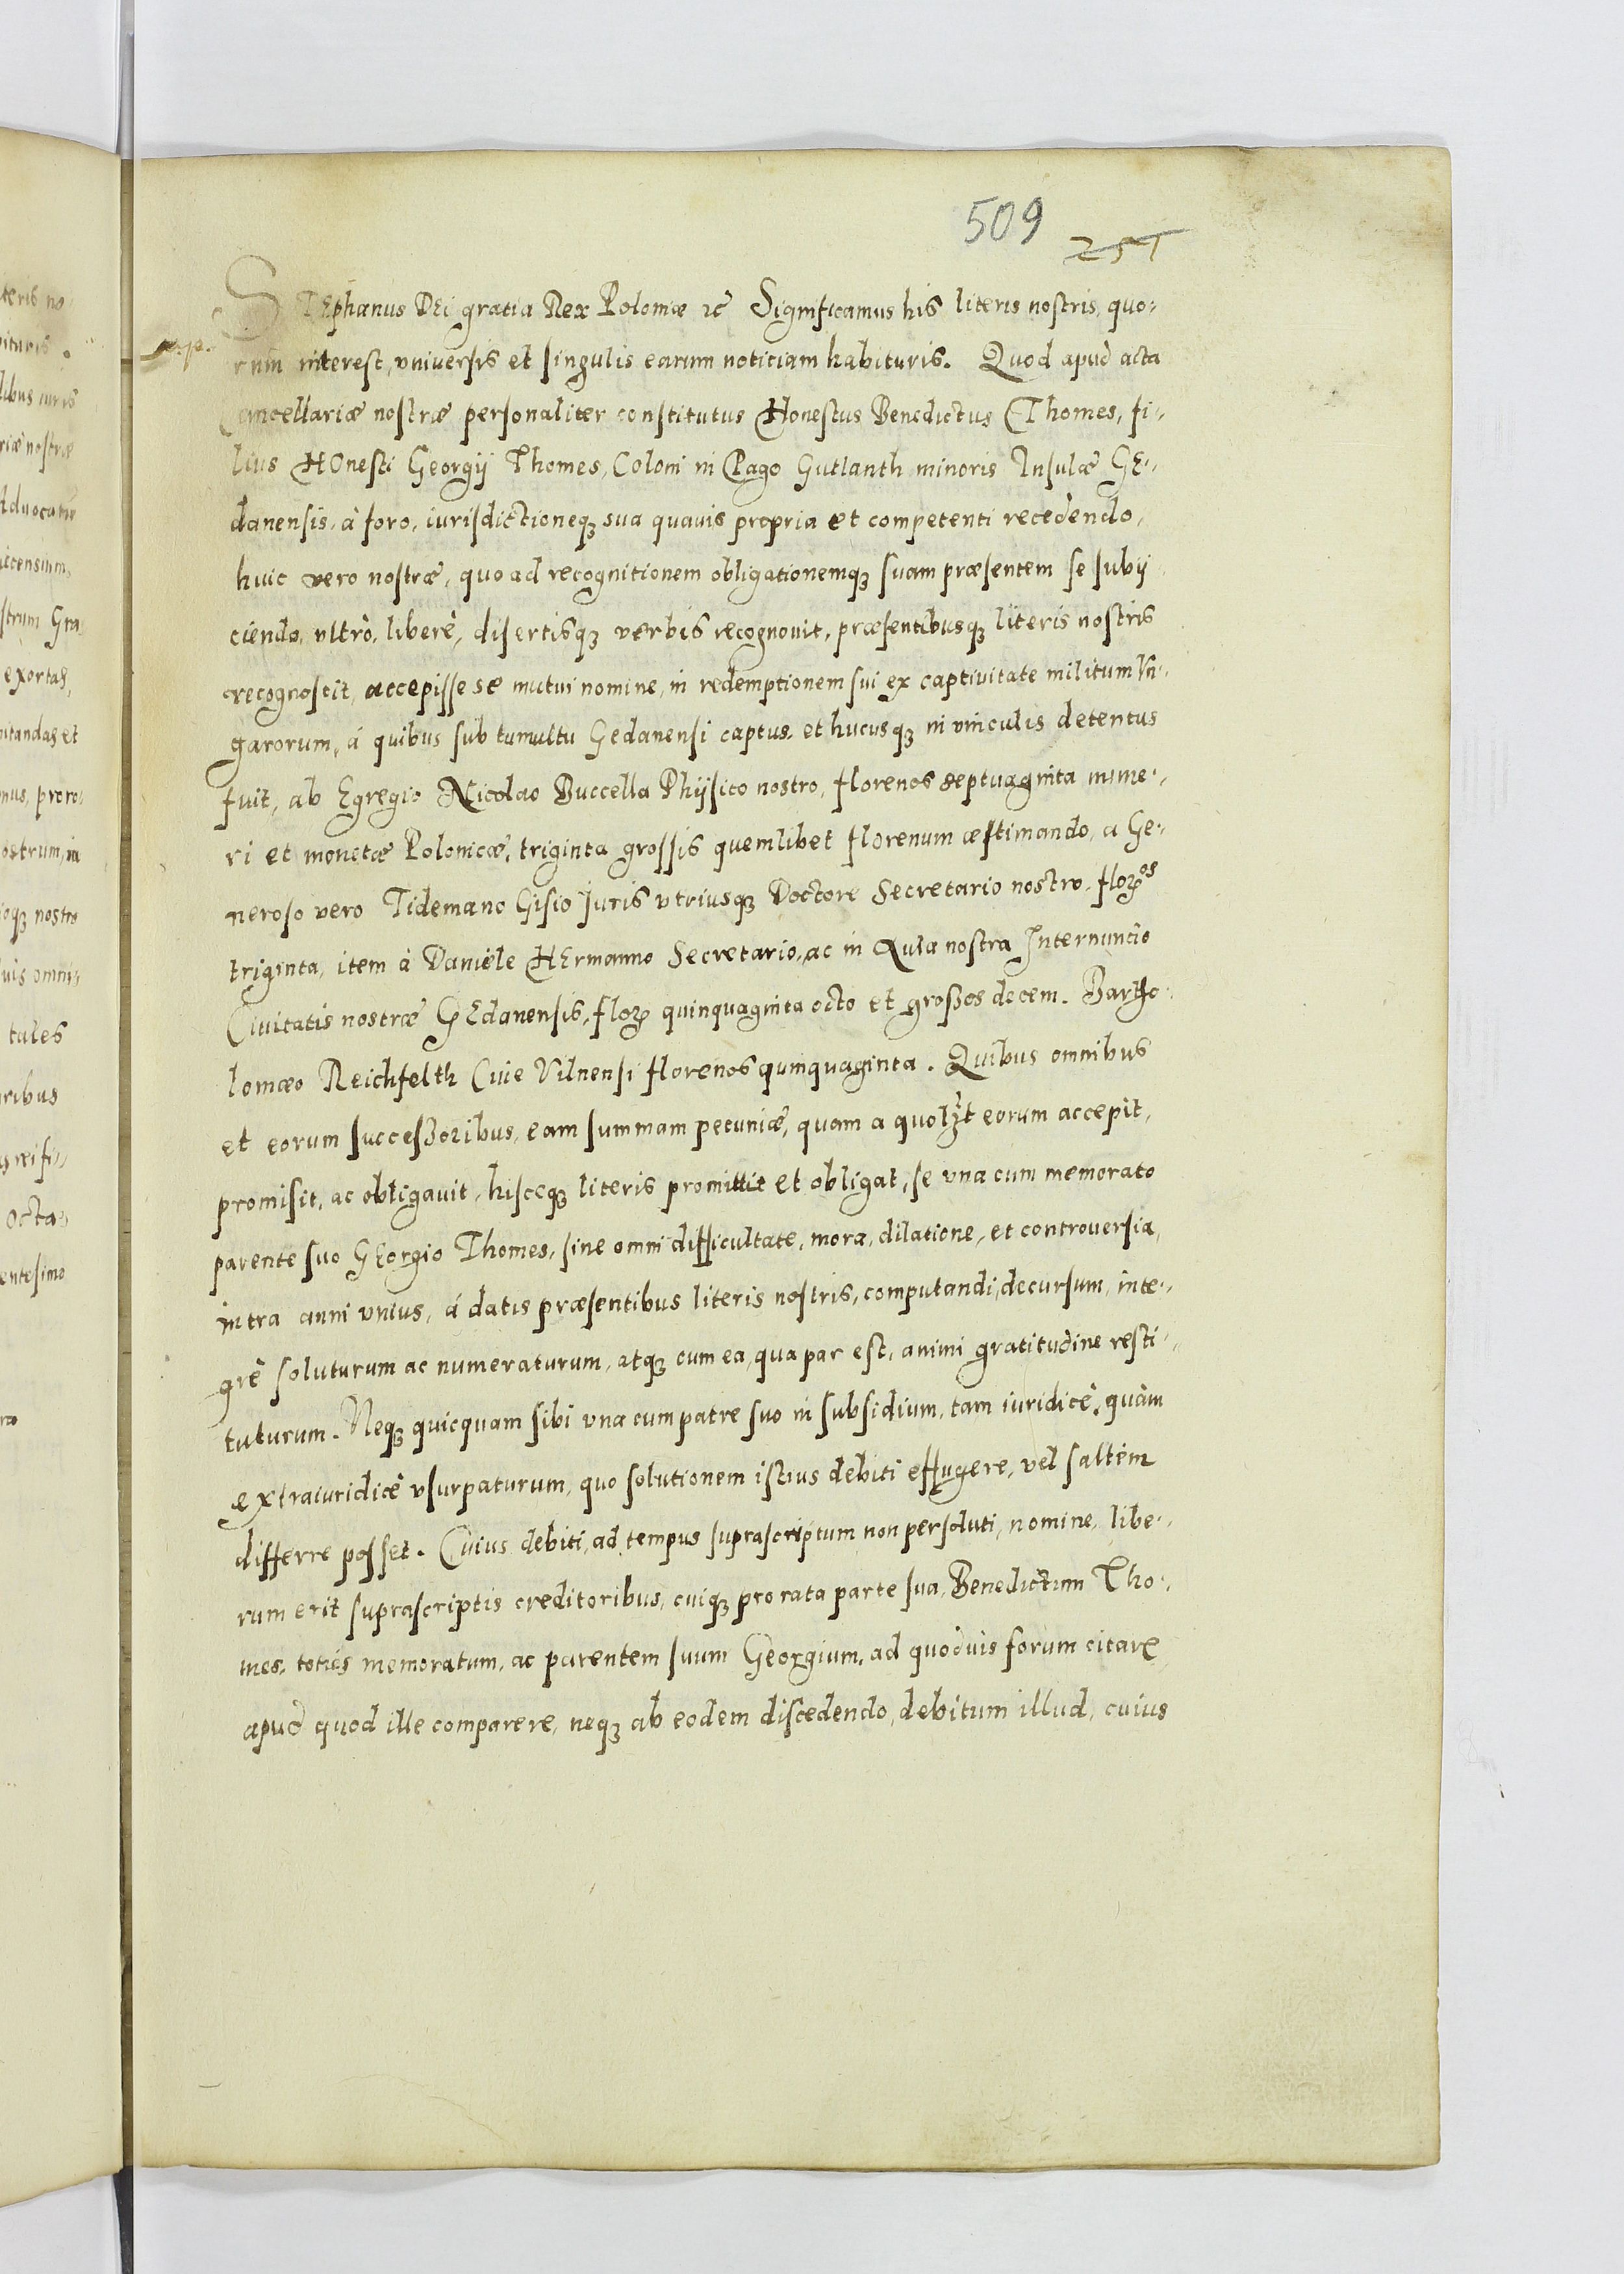 509
251
STEphanus DEi gratia Rex Poloniæ ꝛc Significamus his literis nostris, quo-
rum interest, vniversis et singulis earum noticiam habituris. Quod apud acta
Cancellariæ nostræ personaliter constitutus Honestus Benedictus Thomes, fi-
lius HOnesti Georgij Thomes, Coloni in Pago Gutlanth minoris Insulæ GE-
danensis, à foro, iurisdictioneqꝫ sua quauis propria et competenti recedendo,
huic vero nostræ, quo ad recognitionem obligationemqꝫ suam præsentem se subij
ciendo, vltrò, liberè, disertisqꝫ verbis recognouit, præsentibusqꝫ literis nostris
recognoscit, accepisse se mutui nomine, in redemptionem sui ex captiuitate militum Vn-
garorum, á quibus sub tumultu Gedanensi captus, et hucusqꝫ in vinculis detentus
fuit, ab Egregio Nicolao Buccella Phijsico nostro, florenos septuaginta nume-
ri et monetæ Polonicæ, triginta grossis quemlibet florenum æstimando, a Ge-
neroso vero Tidemano Gisio Iuris vtriusqꝫ Doctore Secretario nostro, floros
triginta, item à Daniele HErmanno Secretario, ac in Aula nostra Internuncio
Ciuitatis nostræ GEdanensis, flor quinquaginta octo et großos decem. Bartho-
lomæo Reichfelth Ciue Vilnensi florenos quinquaginta. Quibus omnibus
et eorum succeßoribus, eam summam pecuniæ, quam a quolꝫt eorum accepit,
promisit, ac obligauit, hisceqꝫ literis promittit et obligat, se vna cum memorato
parente suo GEorgio Thomes, sine omni difficultate, mora, dilatione, et controuersia,
intra anni vnius, á datis præsentibus literis nostris, computandi, decursum, inte-
grè soluturum ac numeraturum, atqꝫ cum ea, qua par est, animi gratitudine resti-
tuturum. Neqꝫ quicquam sibi vna cum patre suo in subsidium, tam iuridicè, quàm
extraiuridicè vsurpaturum, quo solutionem istius debiti effugere, vel saltem
differre posset. Cuius debiti, ad tempus suprascriptum non persoluti, nomine, libe-
rum erit suprascriptis creditoribus, cuiqꝫ pro rata parte sua, Benedictum Tho-
mes, toties memoratum, ac parentem suum Georgium, ad quoduis forum citare
apud quod ille comparere, neqꝫ ab eodem discedendo, debitum illud, cuius